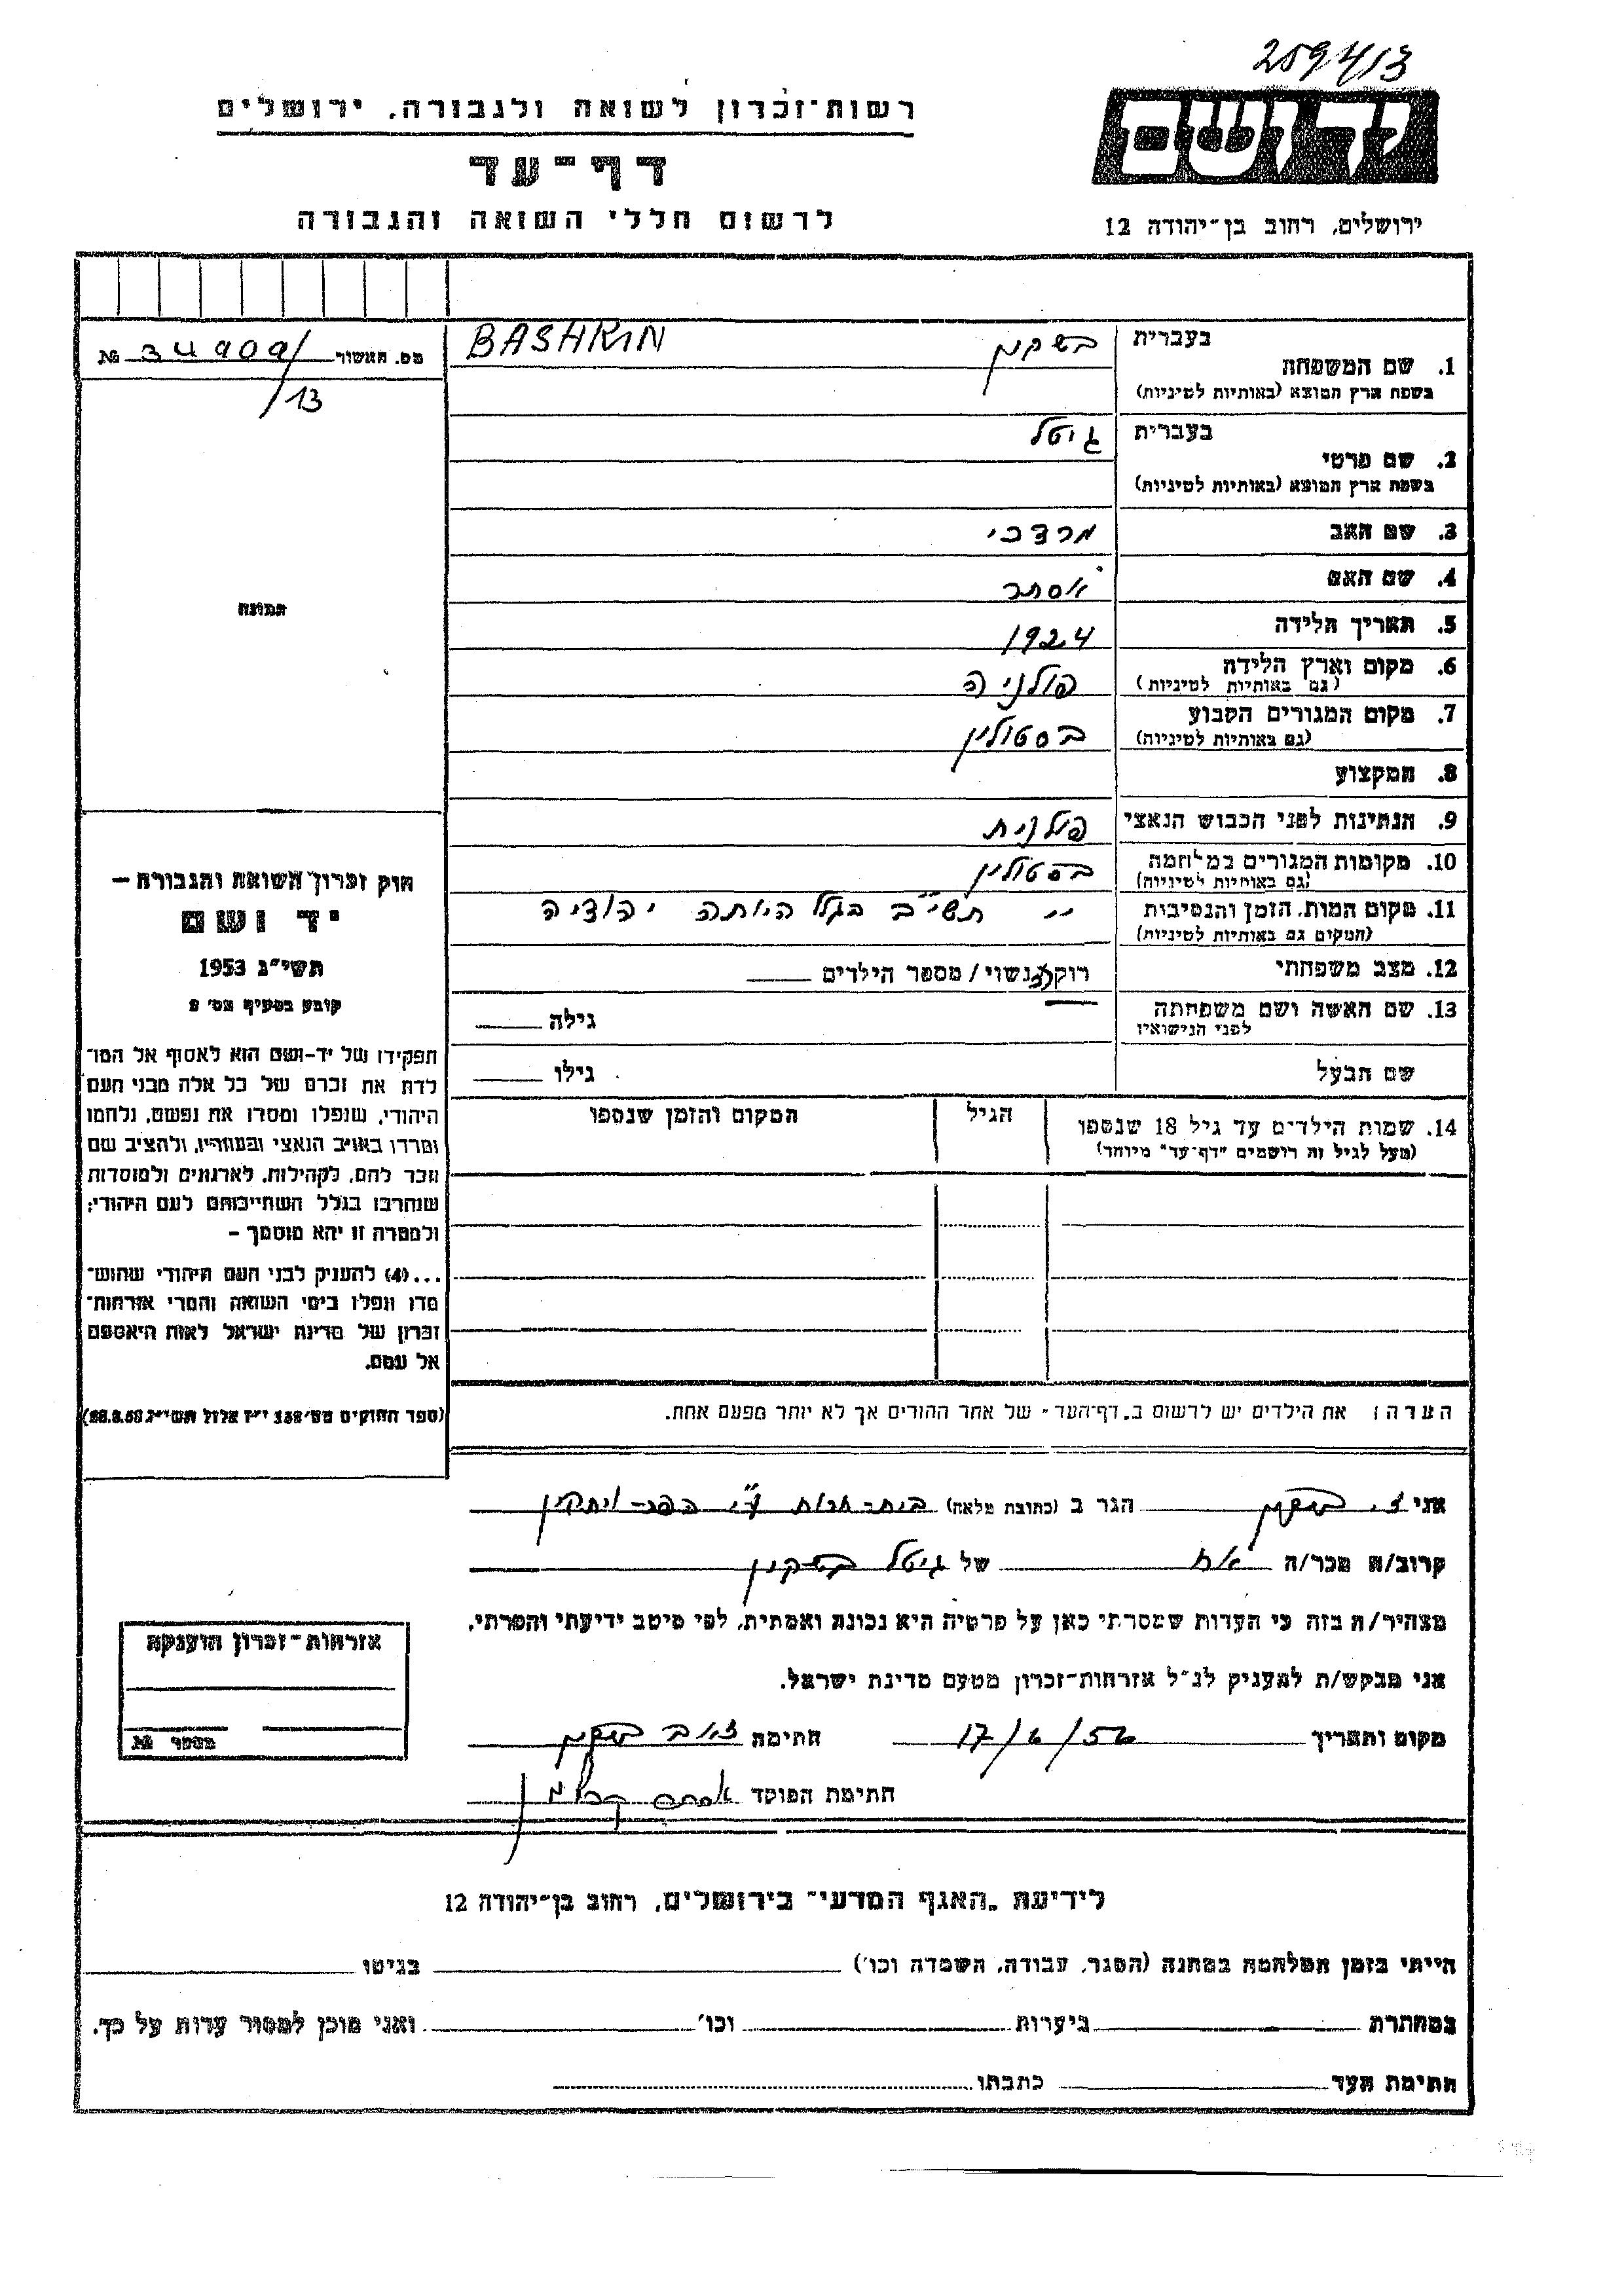 259413
רשות-זכרון לשואה ולגבורה, ירושלים
יד ושם
דף-עד
לרשום חללי השואה והגבורה
ירושלים, רחוב בן-יהודה 12
מס. האשור 34909/ №
/13
בעברית בשקין BASHKIN
1. שם המשפחה
בשפת ארץ המוצא (באותיות לטיניות)
בעברית גיטל
2. שם פרטי
בשפת ארץ המוצא (באותיות לטיניות)
3. שם האב מרדכי
4. שם האם אסתר
5. תאריך הלידה 1924
6. מקום וארץ הלידה פולניה
(גם באותיות לטיניות)
7. מקום המגורים הקבוע בסטולין
(גם באותיות לטיניות)
8. המקצוע
9. הנתינות לפני הכבוש הנאצי פולנית
10. מקומות המגורים במלחמה בסטולין
(גם באותיות לטיניות)
11. מקום המות, הזמן והנסיבות ״ תשי״ב בגלל היותה יהודיה
(המקום גם באותיות לטיניות)
12. מצב משפחתי רוק/ה נשוי/ מספר הילדים
13. שם האשה ושם משפחתה גילה
לפני הנישואין
שם הבעל גילו
14. שמות הילדים עד גיל 18 שנספו הגיל המקום והזמן שנספו
(מעל לגיל זה רושמים "דף-עד" מיוחד)
הערה: את הילדים יש לרשום ב"דף-העד" של אחד ההורים אך לא יותר מפעם אחת.
תמונה
חוק זכרון השואה והגבורה —
יד ושם
תשי"ג 1953
קובע בסעיף מס'
תפקידו של יד-ושם הוא לאסוף אל המו-
לדת את זכרם של כל אלה מבני העם
היהודי, שנפלו ומסרו את נפשם, נלחמו
ומרדו באויב הנאצי ובעוזריו, ולהציב שם
וזכר להם, לקהילות, לארגונים ולמוסדות
שנחרבו בגלל השתייכותם לעם היהודי;
ולמטרה זו יהא מוסמך —
...(4) להעניק לבני העם היהודי שהוש-
מדו ונפלו בימי השואה והמרי אזרחות-
זכרון של מדינת ישראל לאות היאספם
אל עמם.
(ספר החוקים מס' 132 י"ז אלול תשי"ג 28.8.53)
אני בשקין הגר ב (כתובת מלאה)
קרוב/ה מכר/ה אח של גיטל בשקין
מצהיר/ה בזה כי העדות שמסרתי כאן על פרטיה היא נכונה ואמתית, לפי מיטב ידיעתי והכרתי.
אני מבקש/ת להעניק לנ"ל אזרחות-זכרון מטעם מדינת ישראל.
מקום ותאריך 17/6/56 חתימה בשקין
חתימת הפוקד
אזרחות-זכרון הוענקה
מספר №
לידיעת "האגף המדעי" בירושלים, רחוב בן-יהודה 12
הייתי בזמן המלחמה במחנה (הסגר, עבודה, השמדה וכו') בגיטו
במחתרת ביערות וכו' ואני מוכן למסור עדות על כך.
חתימת העד כתבתו